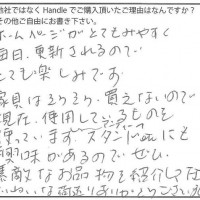 他社ではなく Handle でご購入頂いたご理由はなんですか？
その他ご自由にお書き下さい。
ホームページがとてもみやすく
毎日、更新されるので
とても楽しみです
家具はそろそろ買えないので
現在、使用しているものを
使っています
興味があるのでぜひ
素敵なお品物を紹介して
ありがとうござい